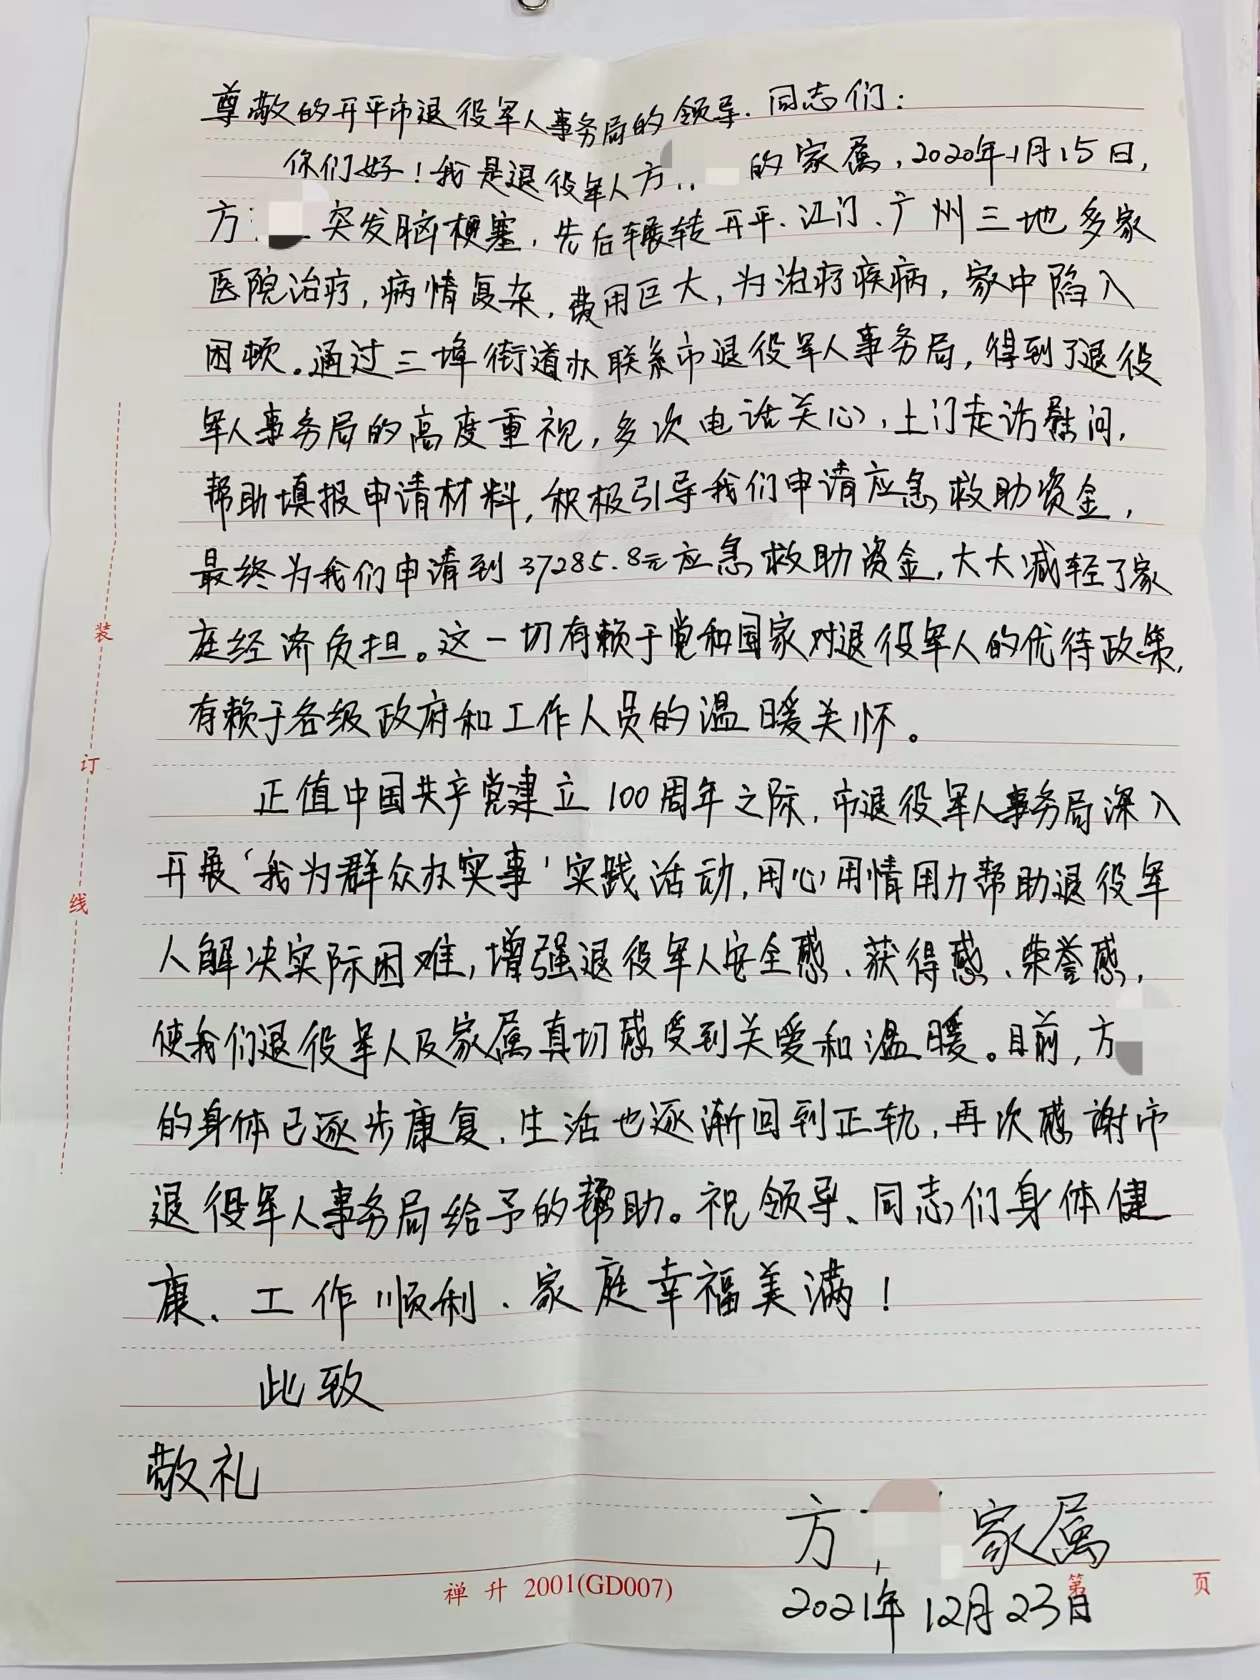 尊敬的开平市退役军人事务局的领导、同志们：
你们好！我是退役军人方 的家属，2020年1月15日，
方 突发脑梗塞，先后辗转开平、江门、广州三地多家
医院治疗，病情复杂，费用巨大，为治疗疾病，家中陷入
困顿。通过三埠街道办联系市退役军人事务局，得到了退役
军人事务局的高度重视，多次电话关心，上门走访慰问，
帮助填报申请材料，积极引导我们申请应急救助资金，
最终为我们申请到37285.8元应急救助资金，大大减轻了家
庭经济负担。这一切有赖于党和国家对退役军人的优待政策，
有赖于各级政府和工作人员的温暖关怀。
正值中国共产党建立100周年之际，市退役军人事务局深入
开展‘我为群众办实事’实践活动，用心用情用力帮助退役军
人解决实际困难，增强退役军人安全感、获得感、荣誉感，
使我们退役军人及家属真切感受到关爱和温暖。目前，方
的身体已逐步康复，生活也逐渐回到正轨，再次感谢市
退役军人事务局给予的帮助。祝领导、同志们身体健
康、工作顺利、家庭幸福美满！
此致
敬礼
方 家属
2021年12月23日
装
订
线
禅升 2001(GD007)
第 页